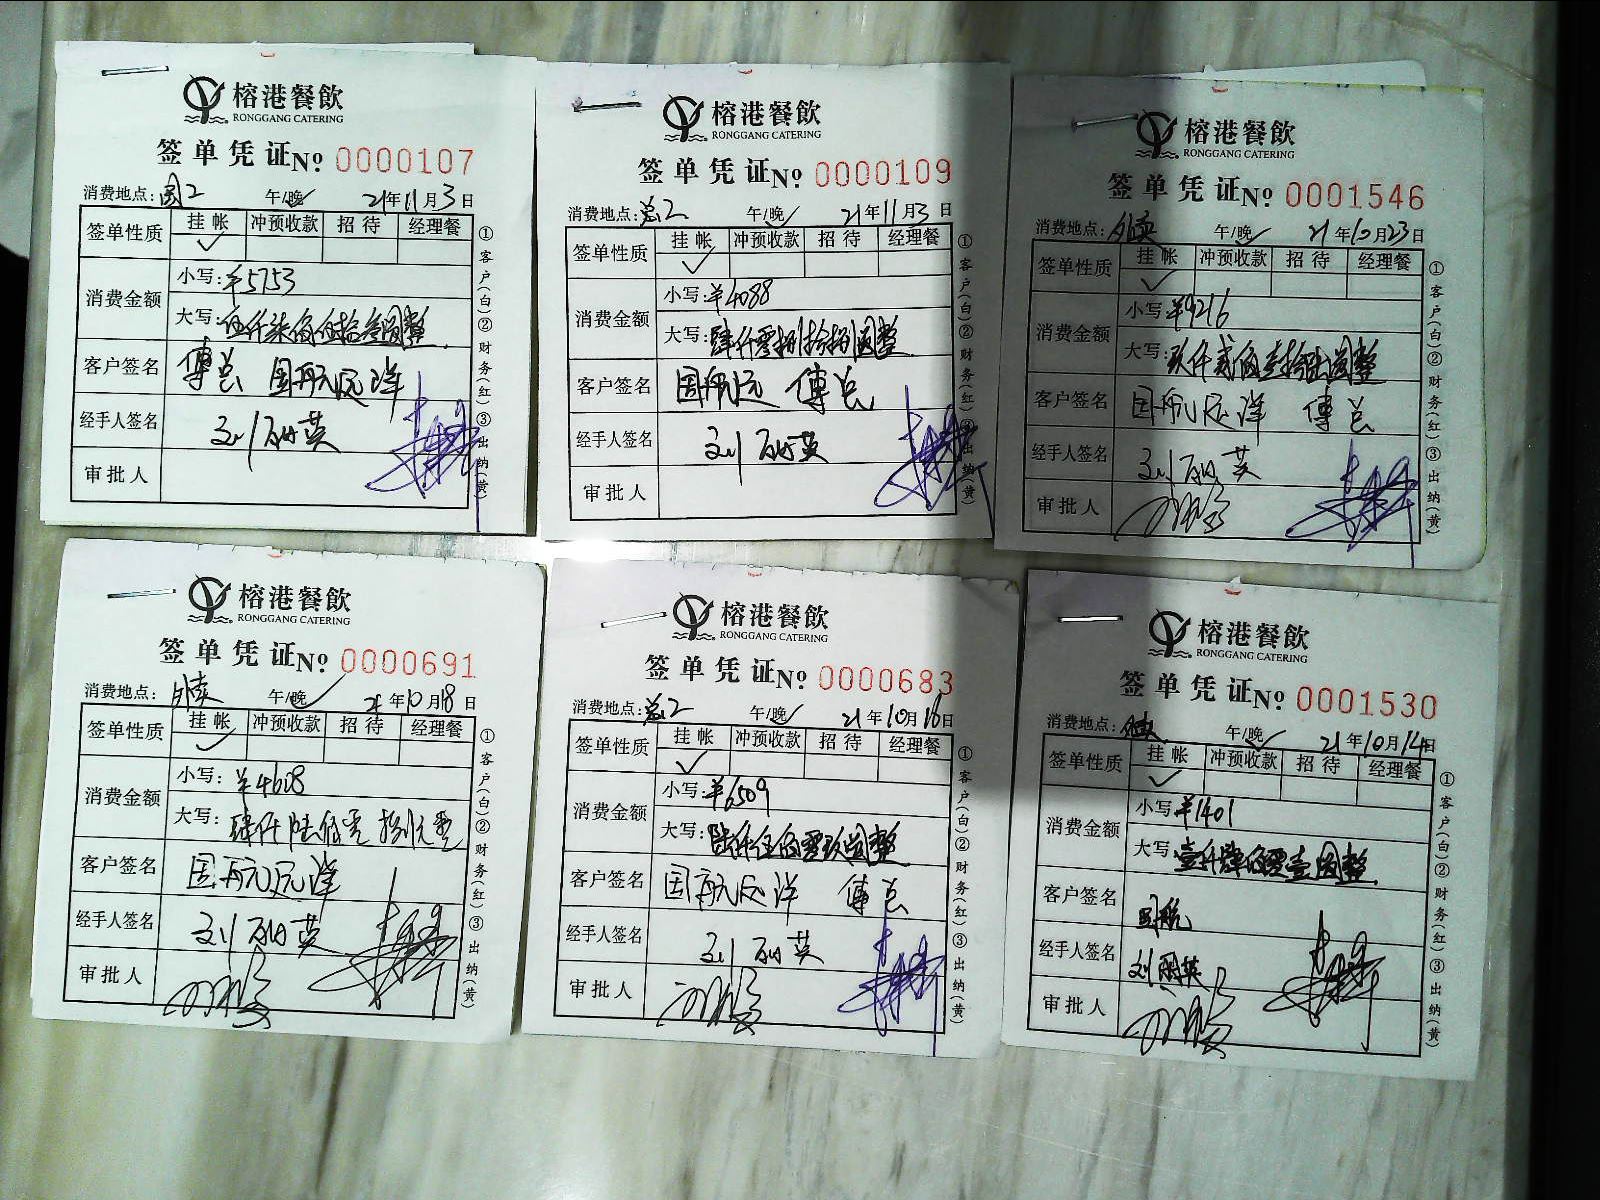 榕港餐飲
RONGGANG CATERING
签单凭证№ 0000107
消费地点: 国2 午/晚 21年11月3日
签单性质 挂帐 冲预收款 招待 经理餐
消费金额 小写:¥5753
大写:伍仟柒佰伍拾叁圆整
客户签名 傅总 国航远洋
经手人签名 刘丽英
审批人
①客户(白)②财务(红)③出纳(黄)
榕港餐飲
RONGGANG CATERING
签单凭证№ 0000109
消费地点: 总2 午/晚 21年11月3日
签单性质 挂帐 冲预收款 招待 经理餐
消费金额 小写:¥4088
大写:肆仟零捌拾捌圆整
客户签名 国航远 傅总
经手人签名 刘丽英
审批人
①客户(白)②财务(红)③出纳(黄)
榕港餐飲
RONGGANG CATERING
签单凭证№ 0001546
消费地点: 外卖 午/晚 21年10月23日
签单性质 挂帐 冲预收款 招待 经理餐
消费金额 小写:¥9216
大写:玖仟贰佰壹拾陆圆整
客户签名 国航远洋 傅总
经手人签名 刘丽英
审批人
①客户(白)②财务(红)③出纳(黄)
榕港餐飲
RONGGANG CATERING
签单凭证№ 0000691
消费地点: 外卖 午/晚 21年10月18日
签单性质 挂帐 冲预收款 招待 经理餐
消费金额 小写: ¥4608
大写: 肆仟陆佰零捌元整
客户签名 国航远洋
经手人签名 刘丽英
审批人
①客户(白)②财务(红)③出纳(黄)
榕港餐飲
RONGGANG CATERING
签单凭证№ 0000683
消费地点: 总2 午/晚 21年10月18日
签单性质 挂帐 冲预收款 招待 经理餐
消费金额 小写:¥6509
大写:陆仟伍佰零玖圆整
客户签名 国航远洋 傅总
经手人签名 刘丽英
审批人
①客户(白)②财务(红)③出纳(黄)
榕港餐飲
RONGGANG CATERING
签单凭证№ 0001530
消费地点: 外卖 午/晚 21年10月14日
签单性质 挂帐 冲预收款 招待 经理餐
消费金额 小写¥1401
大写:壹仟肆佰零壹圆整
客户签名 国航
经手人签名 刘丽英
审批人
①客户(白)②财务(红)③出纳(黄)